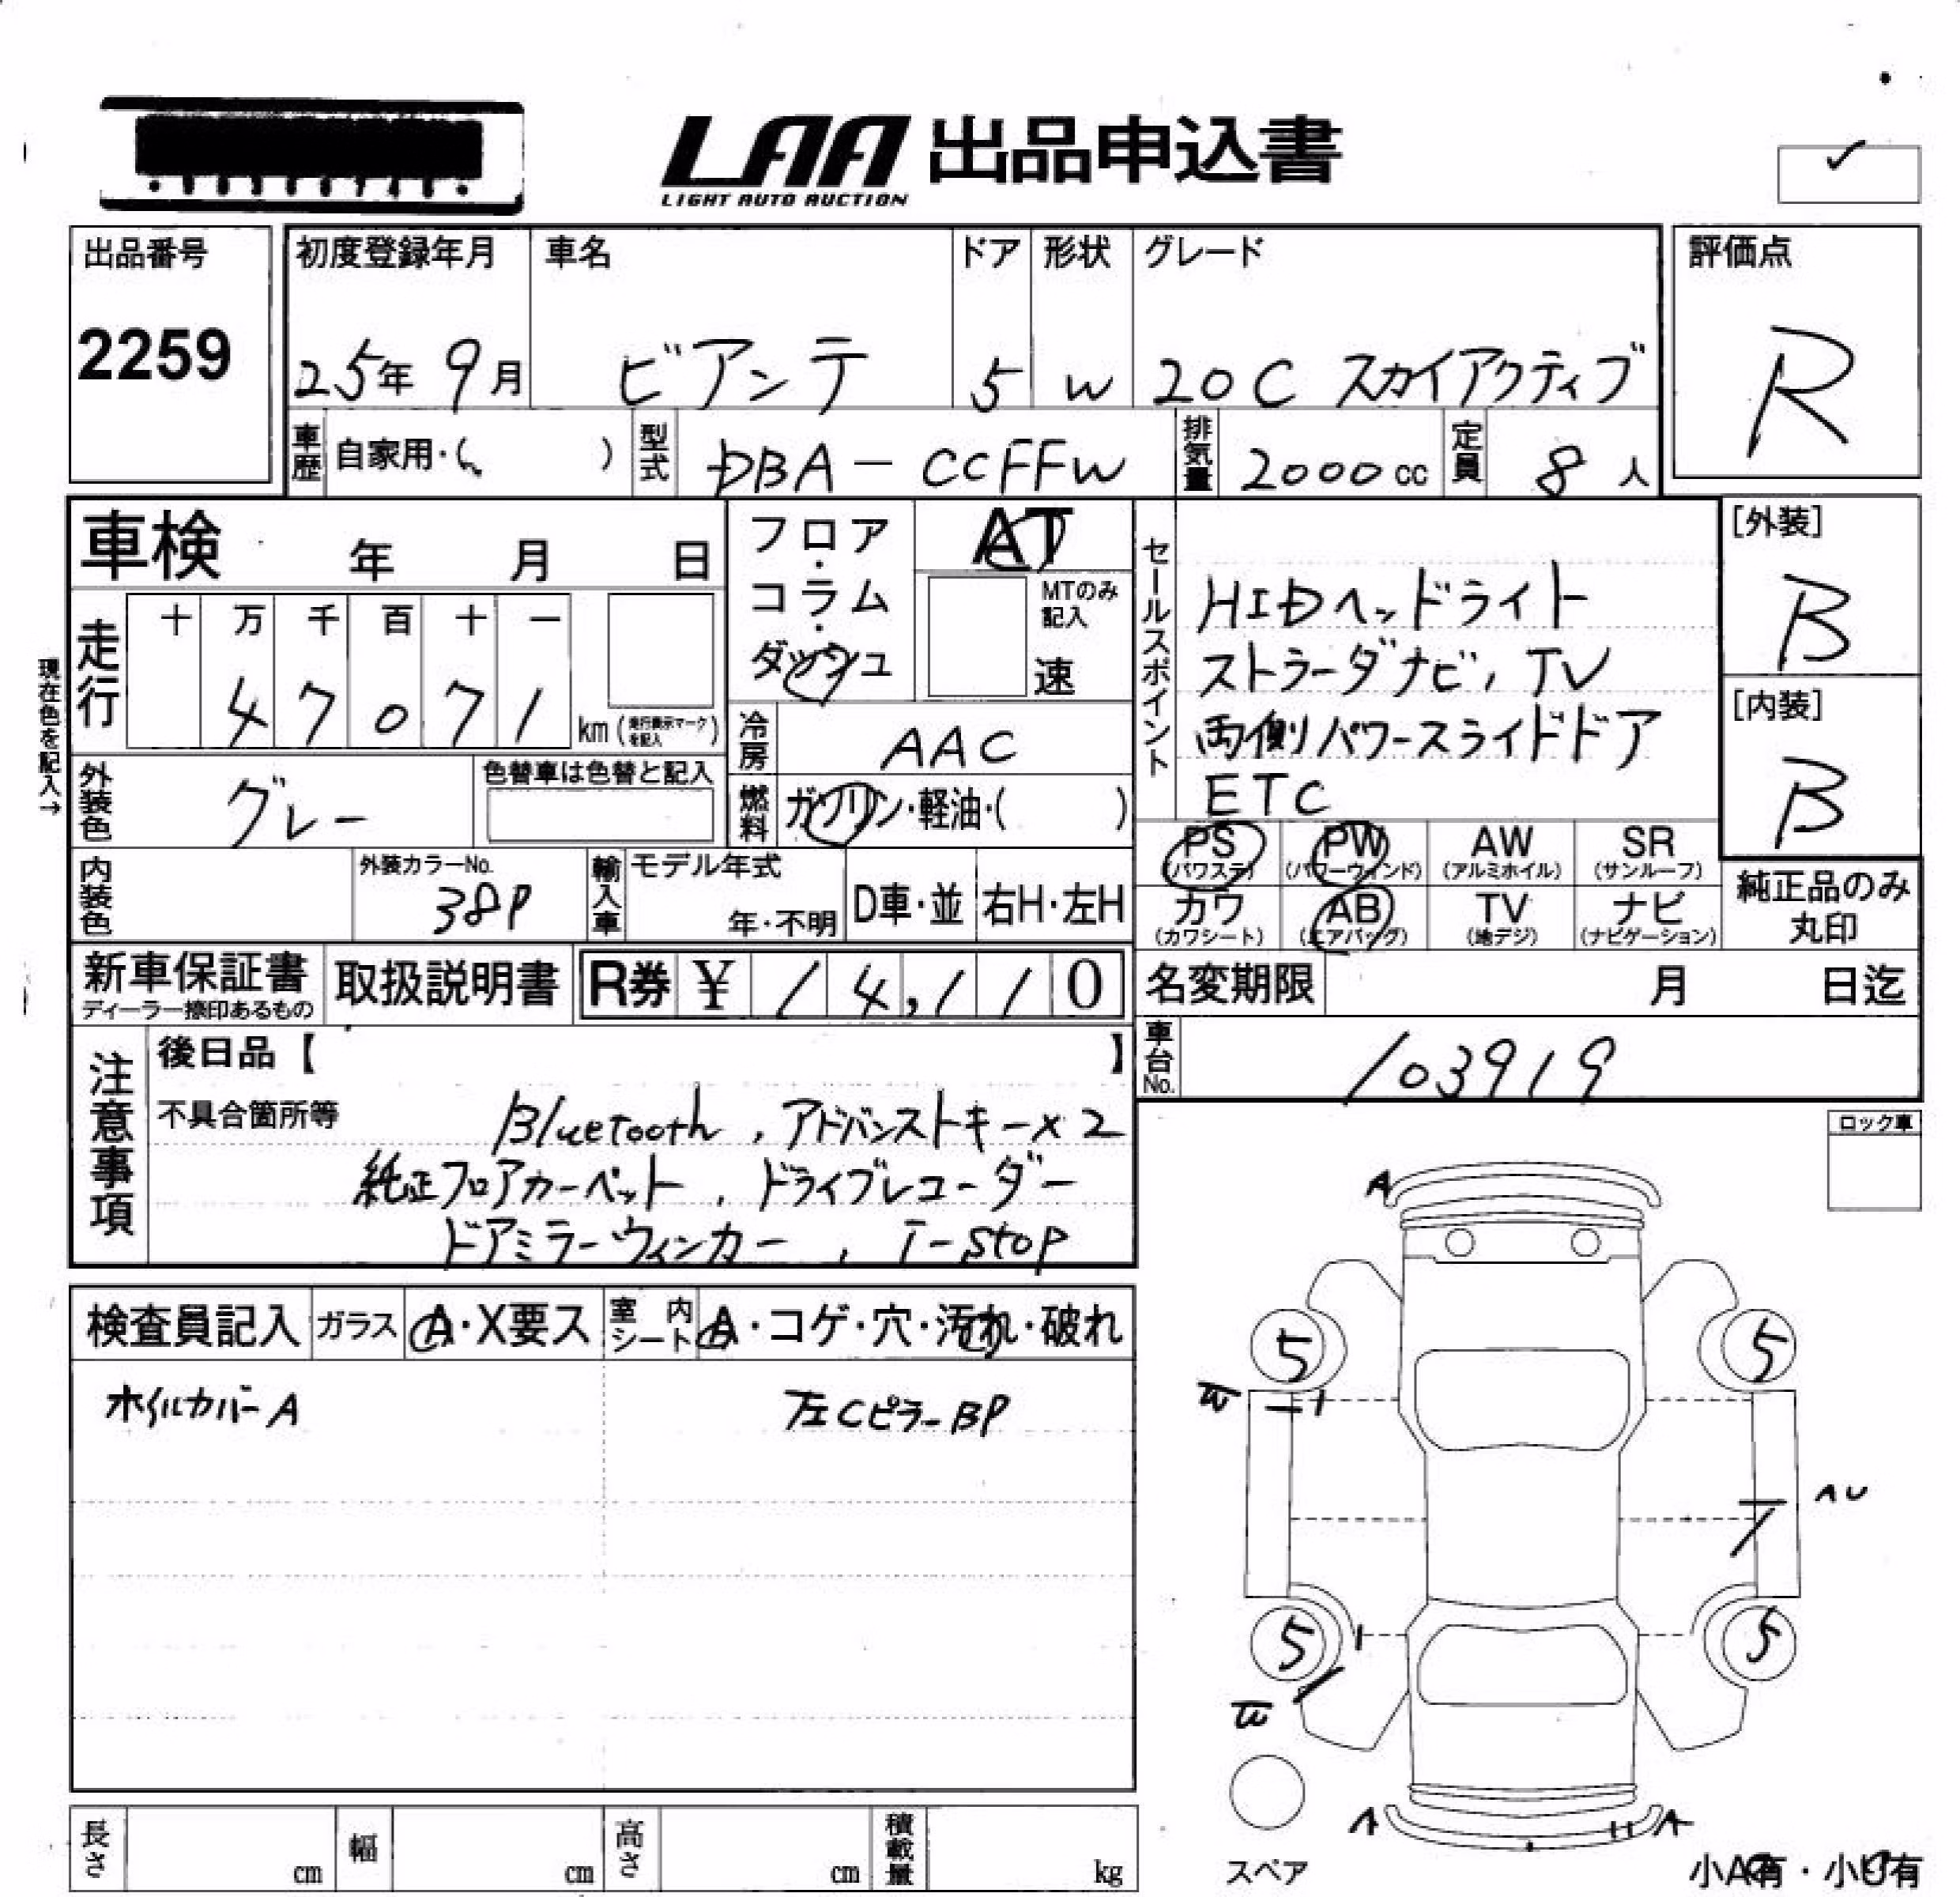 LAA 出品申込書
LIGHT AUTO AUCTION
出品番号
2259
初度登録年月
25年 9月
車名
ビアンテ
ドア
5
形状
W
グレード
20C スカイアクティブ
評価点
R
車歴
自家用・( )
型式
DBA-CCFFW
排気量
2000cc
定員
8人
車検 年 月 日
フロア・コラム・ダッシュ
AT
MTのみ記入
速
現在色を記入→
走行
十 万 千 百 十 一
4 7 0 7 1
km(走行表示マークを記入)
冷房
AAC
外装色
グレー
色替車は色替と記入
燃料
ガソリン・軽油・( )
内装色
外装カラーNo.
38P
輸入車
モデル年式
年・不明
D車・並
右H・左H
セールスポイント
HIDヘッドライト
ストラーダナビ, TV
両側パワースライドドア
ETC
[外装]
B
[内装]
B
PS (パワステ)
PW (パワーウィンド)
AW (アルミホイル)
SR (サンルーフ)
カワ (カワシート)
AB (エアバッグ)
TV (地デジ)
ナビ (ナビゲーション)
純正品のみ丸印
新車保証書
ディーラー捺印あるもの
取扱説明書
R券 ¥ 14,110
名変期限 月 日迄
車台No.
103919
注意事項
後日品【 】
不具合箇所等
Bluetooth, アドバンストキー×2
純正フロアカーペット, ドライブレコーダー
ドアミラーウィンカー, i-stop
検査員記入
ガラス
A・X要ス
室内シート
A・コゲ・穴・汚れ・破れ
ホイルカバーA
左CピラーBP
ロック車
A
5
5
AU
5
5
A
A
スペア
小A有・小U有
長さ cm
幅 cm
高さ cm
積載量 kg